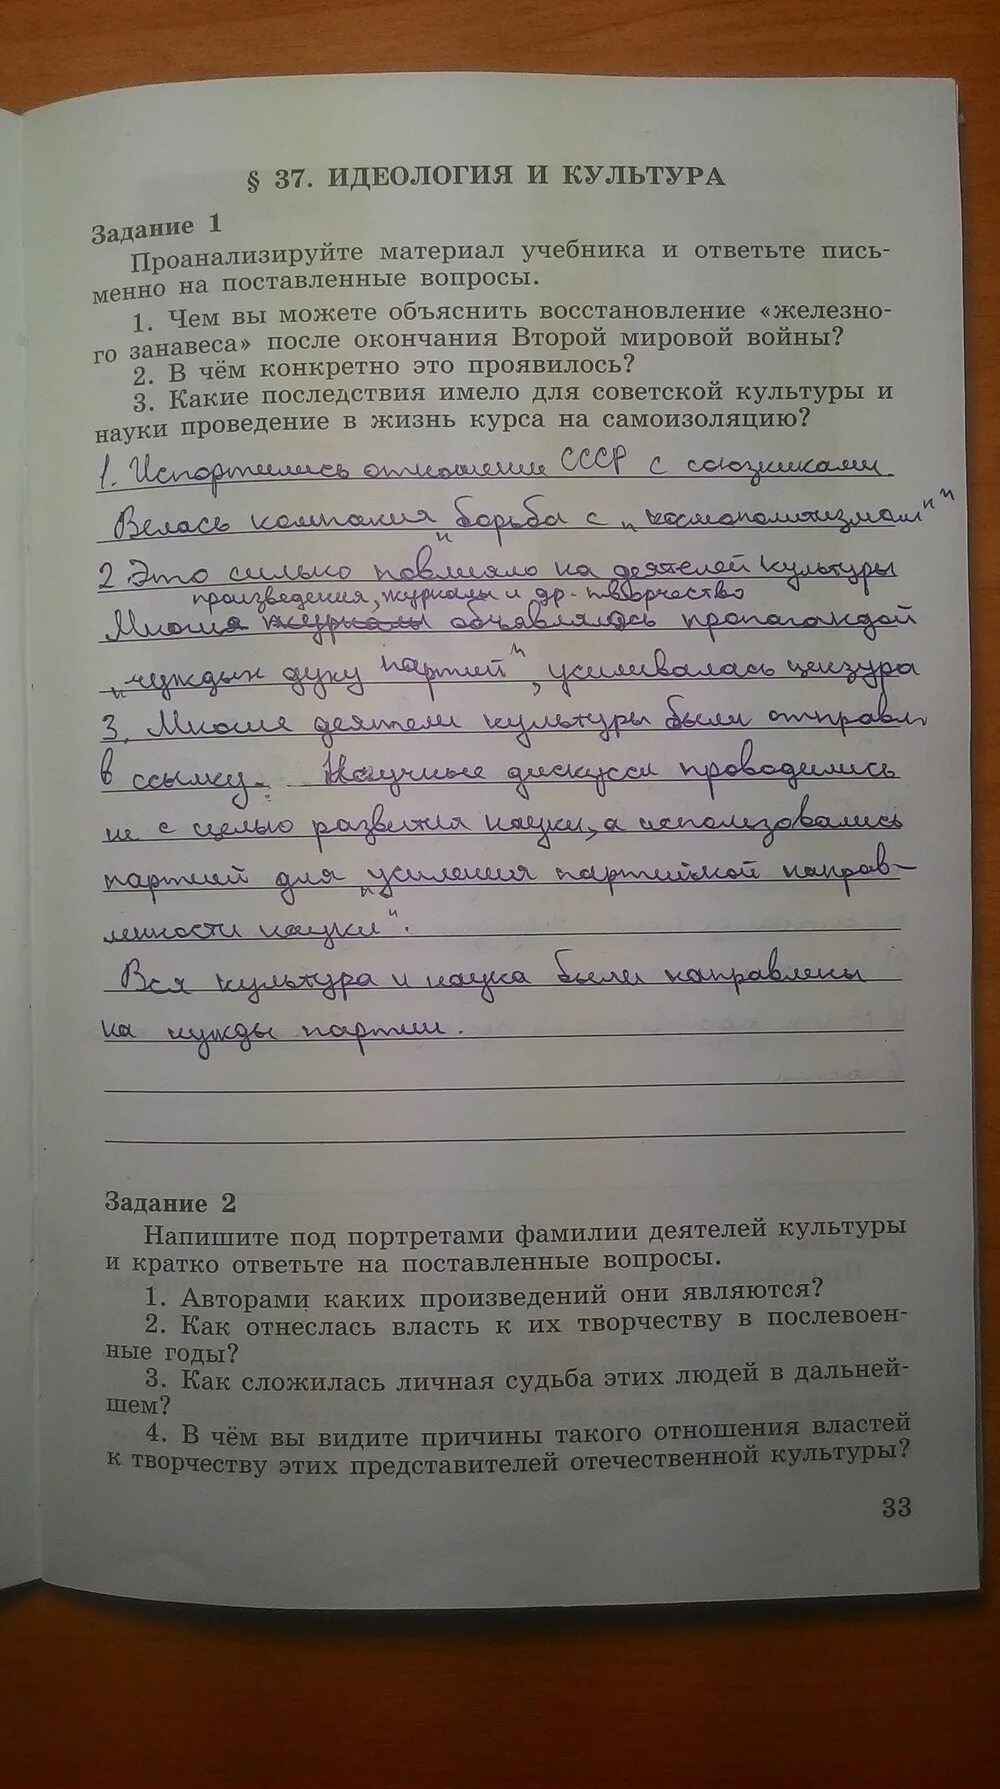 § 37. ИДЕОЛОГИЯ И КУЛЬТУРА
Задание 1
Проанализируйте материал учебника и ответьте пись-
менно на поставленные вопросы.
1. Чем вы можете объяснить восстановление «железно-
го занавеса» после окончания Второй мировой войны?
2. В чём конкретно это проявилось?
3. Какие последствия имело для советской культуры и
науки проведение в жизнь курса на самоизоляцию?
1. Испортились отношения СССР с союзниками
Велась компания "борьба с "космополитизмом""
2 Это сильно повлияло на деятелей культуры
произведения, журналы и др. творчество
Многие журналы объявлялось пропагандой
"чуждых духу партии", усиливалась цензура
3. Многие деятели культуры были отправл.
в ссылку. Научные дискуссии проводились
не с целью развития науки, а использовались
партией для "усиления партийной направ-
ленности науки".
Вся культура и наука были направлены
на нужды партии.
Задание 2
Напишите под портретами фамилии деятелей культуры
и кратко ответьте на поставленные вопросы.
1. Авторами каких произведений они являются?
2. Как отнеслась власть к их творчеству в послевоен-
ные годы?
3. Как сложилась личная судьба этих людей в дальней-
шем?
4. В чём вы видите причины такого отношения властей
к творчеству этих представителей отечественной культуры?
33